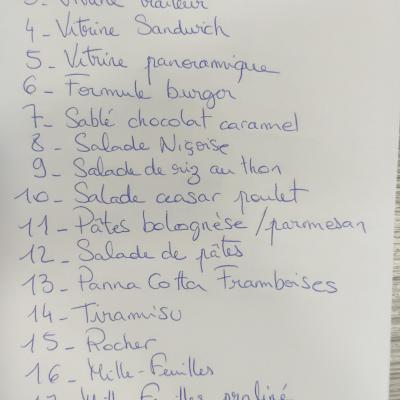 3- Vitrine traiteur
4- Vitrine Sandwich
5- Vitrine panoramique
6- Formule burger
7- Sablé chocolat caramel
8- Salade Niçoise
9- Salade de riz au thon
10- Salade ceasar poulet
11- Pâtes bolognèse /parmesan
12- Salade de pâtes
13- Panna Cotta Framboises
14- Tiramisu
15- Rocher
16- Mille-Feuilles
17- Mille Feuilles praliné